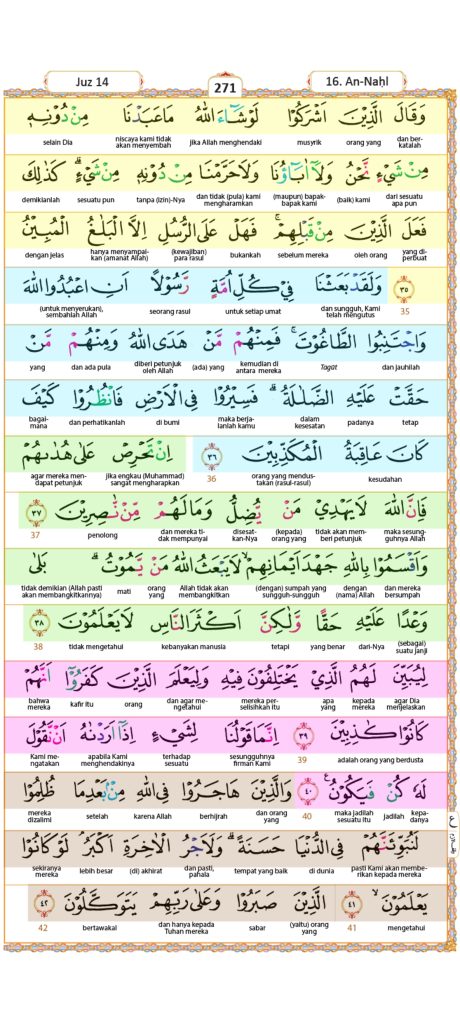 Juz 14
271
16. An-Naḥl
وَقَالَ الَّذِيْنَ اَشْرَكُوْا لَوْ شَاۤءَ اللّٰهُ مَا عَبَدْنَا مِنْ دُوْنِهٖ
dan ber-katalah orang yang musyrik jika Allah menghendaki niscaya kami tidak akan menyembah selain Dia
مِنْ شَيْءٍ نَّحْنُ وَلَآ اٰبَاۤؤُنَا وَلَا حَرَّمْنَا مِنْ دُوْنِهٖ مِنْ شَيْءٍ ۗ كَذٰلِكَ
dari sesuatu apa pun (baik) kami (maupun) bapak-bapak kami dan tidak (pula) kami mengharamkan tanpa (izin)-Nya sesuatu pun demikianlah
فَعَلَ الَّذِيْنَ مِنْ قَبْلِهِمْ ۚ فَهَلْ عَلَى الرُّسُلِ اِلَّا الْبَلٰغُ الْمُبِيْنُ
yang di-perbuat oleh orang sebelum mereka bukankah (kewajiban) para rasul hanya menyampai-kan (amanat Allah) dengan jelas
٣٥ وَلَقَدْ بَعَثْنَا فِيْ كُلِّ اُمَّةٍ رَّسُوْلًا اَنِ اعْبُدُوا اللّٰهَ
35 dan sungguh, Kami telah mengutus untuk setiap umat seorang rasul (untuk menyerukan), sembahlah Allah
وَاجْتَنِبُوا الطَّاغُوْتَ ۚ فَمِنْهُمْ مَّنْ هَدَى اللّٰهُ وَمِنْهُمْ مَّنْ
dan jauhilah Tagūt kemudian di antara mereka (ada) yang diberi petunjuk oleh Allah dan ada pula yang
حَقَّتْ عَلَيْهِ الضَّلٰلَةُ ۗ فَسِيْرُوْا فِى الْاَرْضِ فَانْظُرُوْا كَيْفَ
tetap padanya dalam kesesatan maka berja-lanlah kamu di bumi dan perhatikanlah bagai-mana
كَانَ عَاقِبَةُ الْمُكَذِّبِيْنَ ٣٦ اِنْ تَحْرِصْ عَلٰى هُدٰىهُمْ
kesudahan orang yang mendus-takan (rasul-rasul) 36 jika engkau (Muhammad) sangat mengharapkan agar mereka men-dapat petunjuk
فَاِنَّ اللّٰهَ لَا يَهْدِيْ مَنْ يُّضِلُّ وَمَا لَهُمْ مِّنْ نّٰصِرِيْنَ ٣٧
maka sesung-guhnya Allah tidak akan mem-beri petunjuk (kepada) orang yang disesat-kan-Nya dan mereka ti-dak mempunyai penolong 37
وَاَقْسَمُوْا بِاللّٰهِ جَهْدَ اَيْمَانِهِمْ ۙ لَا يَبْعَثُ اللّٰهُ مَنْ يَّمُوْتُ ۗ بَلٰى
dan mereka bersumpah dengan (nama) Allah (dengan) sumpah yang sungguh-sungguh Allah tidak akan membangkitkan orang yang mati tidak demikian (Allah pasti akan membangkitkannya)
وَعْدًا عَلَيْهِ حَقًّا وَّلٰكِنَّ اَكْثَرَ النَّاسِ لَا يَعْلَمُوْنَ ٣٨
(sebagai) suatu janji dari-Nya yang benar tetapi kebanyakan manusia tidak mengetahui 38
لِيُبَيِّنَ لَهُمُ الَّذِيْ يَخْتَلِفُوْنَ فِيْهِ وَلِيَعْلَمَ الَّذِيْنَ كَفَرُوْٓا اَنَّهُمْ
agar Dia menjelaskan kepada mereka apa yang mereka per-selisihkan itu dan agar me-ngetahui orang kafir itu bahwa mereka
كَانُوْا كٰذِبِيْنَ ٣٩ اِنَّمَا قَوْلُنَا لِشَيْءٍ اِذَآ اَرَدْنٰهُ اَنْ نَّقُوْلَ
adalah orang yang berdusta 39 sesungguhnya firman Kami terhadap sesuatu apabila Kami menghendakinya Kami me-ngatakan
لَهٗ كُنْ فَيَكُوْنُ ۚ ٤٠ وَالَّذِيْنَ هَاجَرُوْا فِى اللّٰهِ مِنْۢ بَعْدِ مَا ظُلِمُوْا
kepa-danya jadilah maka jadilah sesuatu itu 40 dan orang yang berhijrah karena Allah setelah mereka dizalimi
لَنُبَوِّئَنَّهُمْ فِى الدُّنْيَا حَسَنَةً ۗ وَلَاَجْرُ الْاٰخِرَةِ اَكْبَرُ لَوْ كَانُوْا
pasti Kami akan membe-rikan kepada mereka di dunia tempat yang baik dan pasti, pahala (di) akhirat lebih besar sekiranya mereka
يَعْلَمُوْنَ ۙ ٤١ الَّذِيْنَ صَبَرُوْا وَعَلٰى رَبِّهِمْ يَتَوَكَّلُوْنَ ٤٢
mengetahui 41 (yaitu) orang yang sabar dan hanya kepada Tuhan mereka bertawakal 42